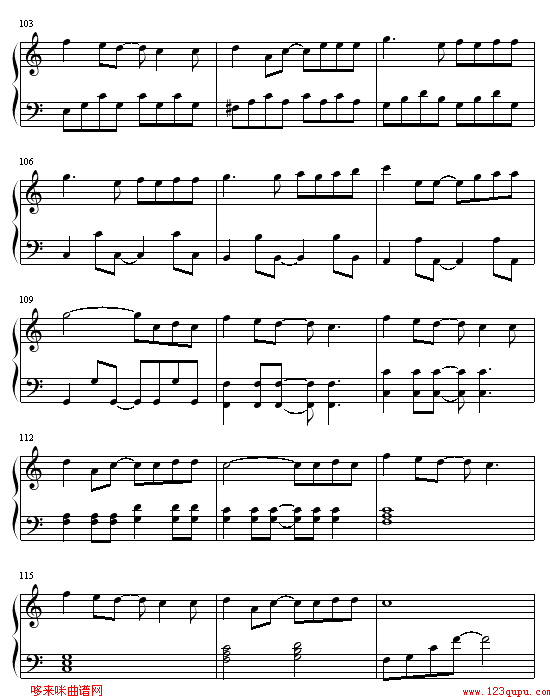 103
106
109
112
115
哆来咪曲谱网
www.123qupu.com